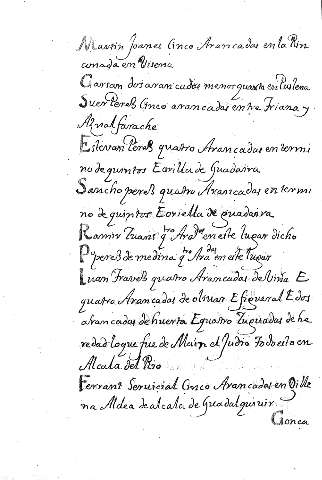 Martin Joanes Cinco Arancadas en la Rin
conada en
Garcia dos arancadas menos quarta en
Suer Peres Cinco arancadas entre Triana y
Aznalfarache
Estevan Peres quatro Arancadas en termi
no de quintos E orilla de Guadaira
Sancho peres quatro Arancadas en termi
no de quintos E oriella de guadaira
Ramir Iuans en este lugar dicho
P peres de medina en este lugar
Iuan quatro Arancadas de Viña E
quatro Arancadas de olivar E figueral E dos
arancadas de huerta E quatro Yuguadas de he
redad lo que fue de el Judio todo esto en
Alcala del Rio
Ferrant Servicial Cinco Arancadas en
na Aldea de alcala de Guadalquivir
Gonca